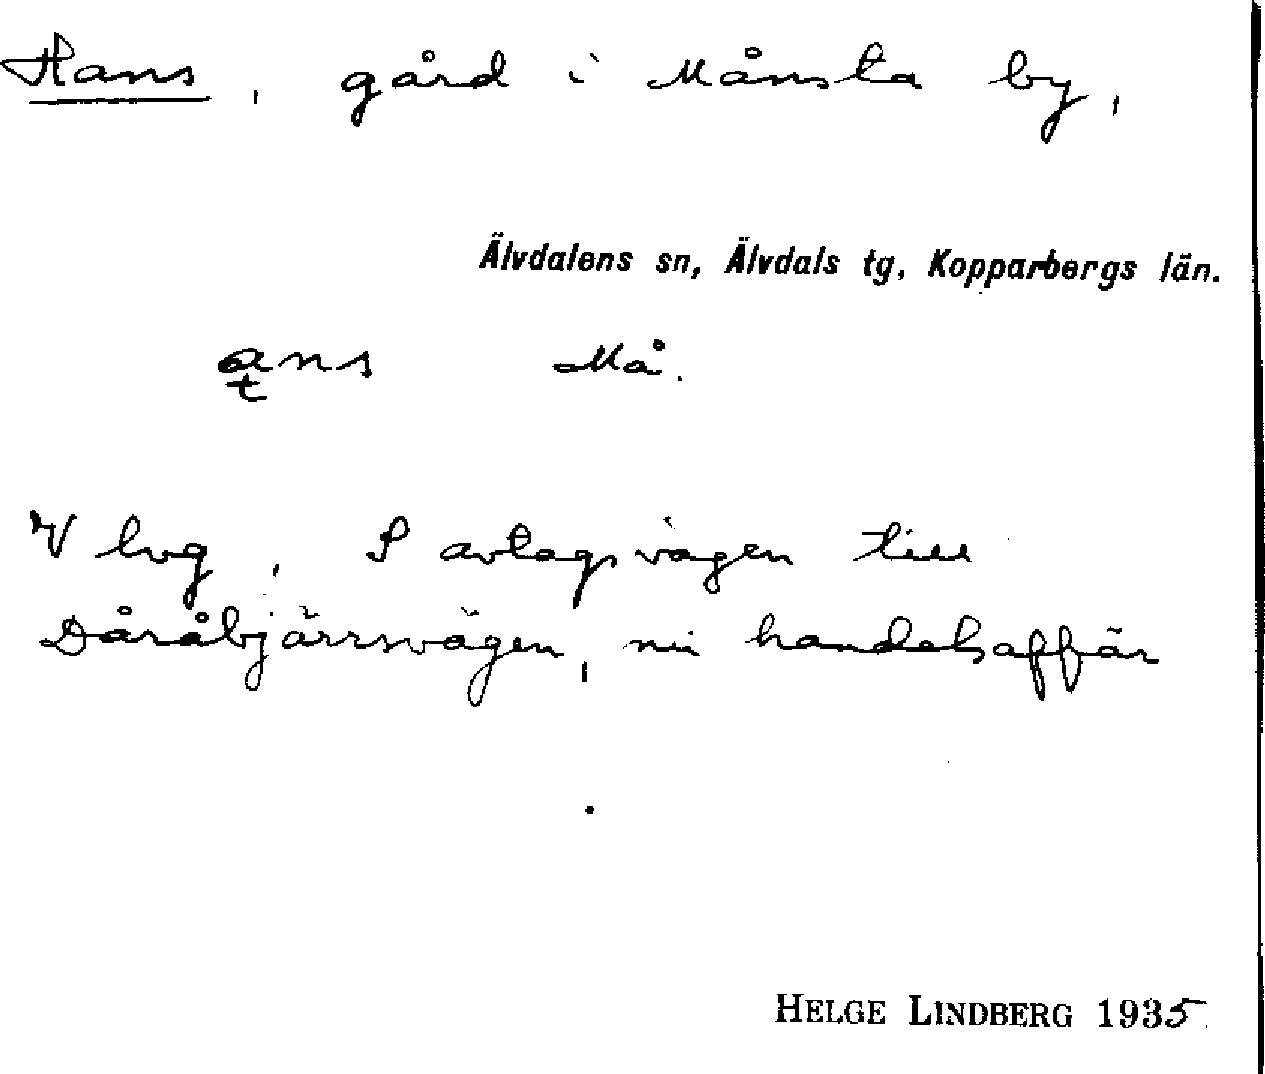 Hans, gård i Månsta by,
Älvdalens sn, Älvdals tg, Kopparbergs län.
ans Må.
V lvg, S avtagsvägen till
Dåråbjärrsvägen, nu handelsaffär
HELGE LINDBERG 1935